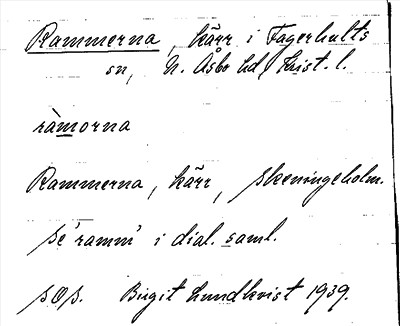 Rammerna, kärr i Fagerhults
sn, N. Åsbo hd, Krist. l.
ràmorna
Rammerna, kärr, Skeningeholm.
Se 'ramm' i dial. saml.
sOs. Birgit Lundkvist 1939.